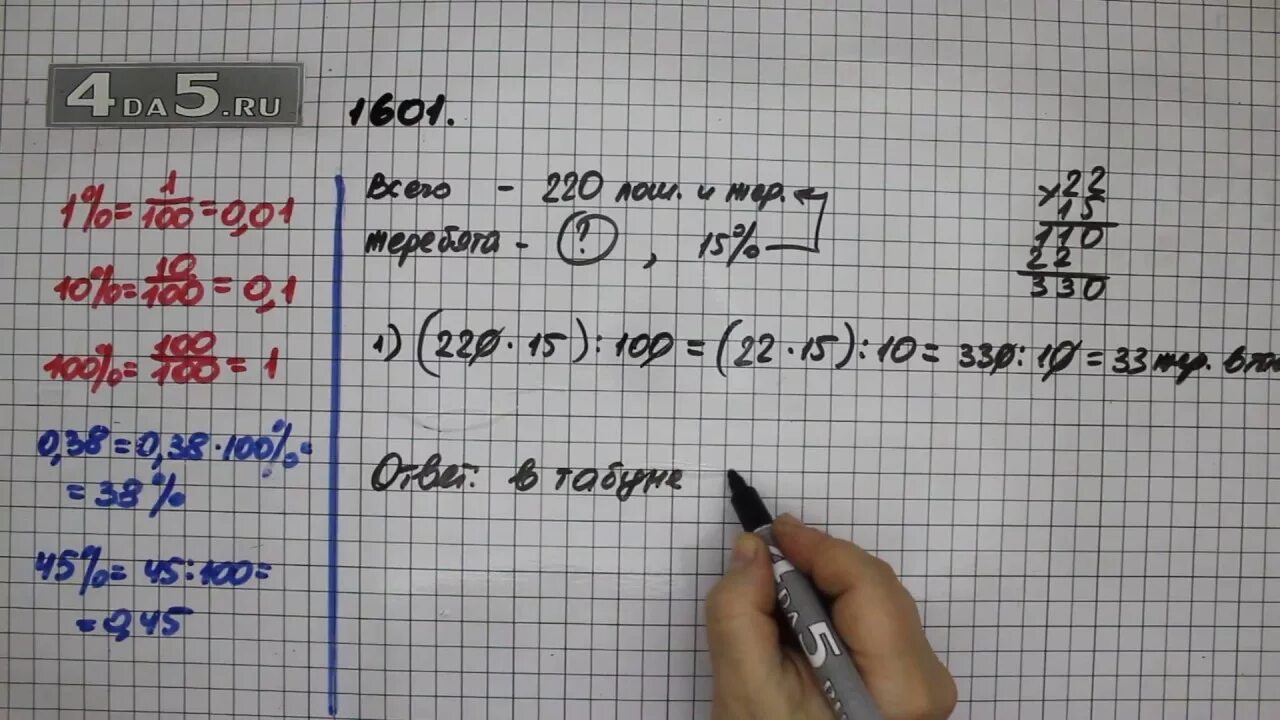 4DA5.RU
1601.
1% = 1/100 = 0,01
10% = 10/100 = 0,1
100% = 100/100 = 1
0,38 = 0,38 · 100% =
= 38%
45% = 45 : 100 =
= 0,45
Всего - 220 лош. и жер.
жеребята - ? , 15%
1) (220 · 15) : 100 = (22 · 15) : 10 = 330 : 10 = 33 жер. в та
× 22
15
110
22
330
Ответ: в табуне
4DA5.RU